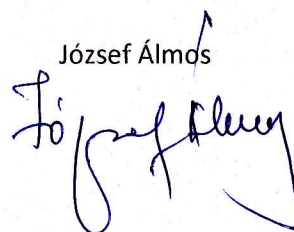 József Álmos
József Álmos